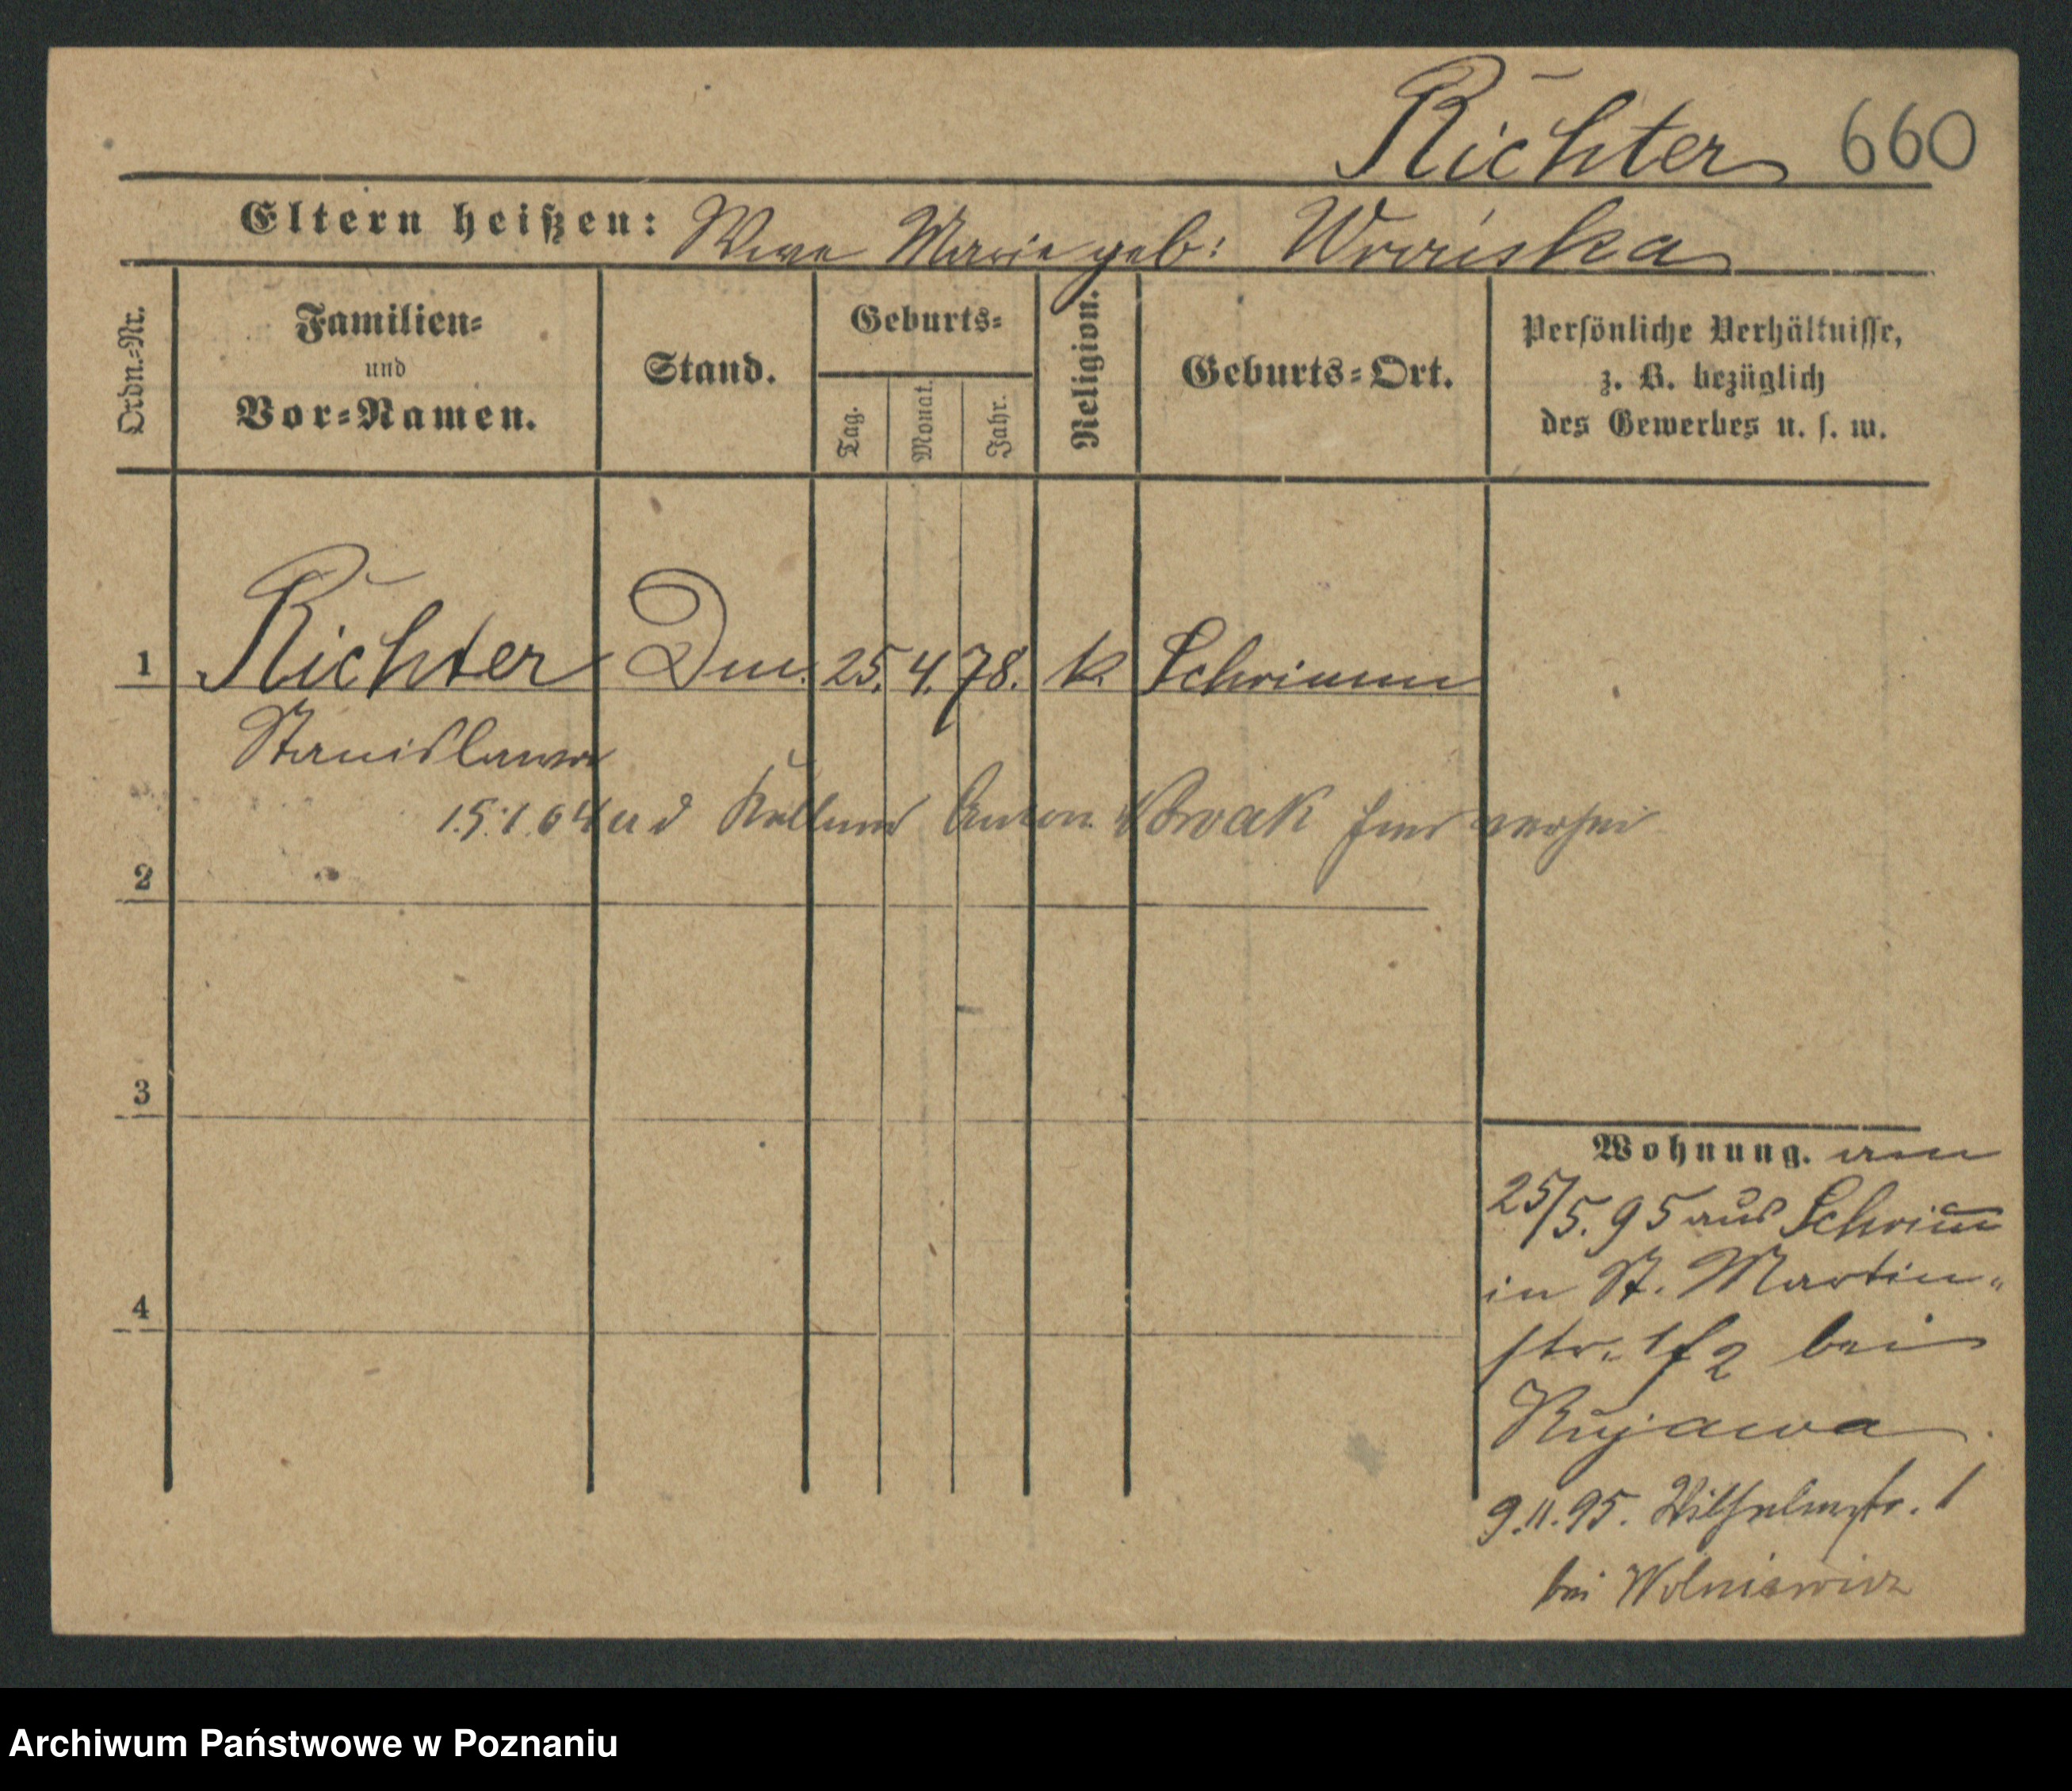 Richter 660
Eltern heißen: Wwe Marie geb:
Ordn.=Nr.
Familien=
und
Vor=Namen.
Stand.
Geburts=
Tag.
Monat.
Jahr.
Religion.
Geburts=Ort.
Persönliche Verhältnisse,
z. B. bezüglich
des Gewerbes u. s. w.
1 Richter 25. 4. 78. k. Schrimm
Stanislawa
15.1.04 a d Kellner Anton Nowak hier verhei
2
3
4
Wohnung. am
25/5. 95 aus Schrim̅
in St. Martin-
str. bei
Kujawa
9.11.95. Wilhelmstr. 1
bei Wolniewicz
Archiwum Państwowe w Poznaniu